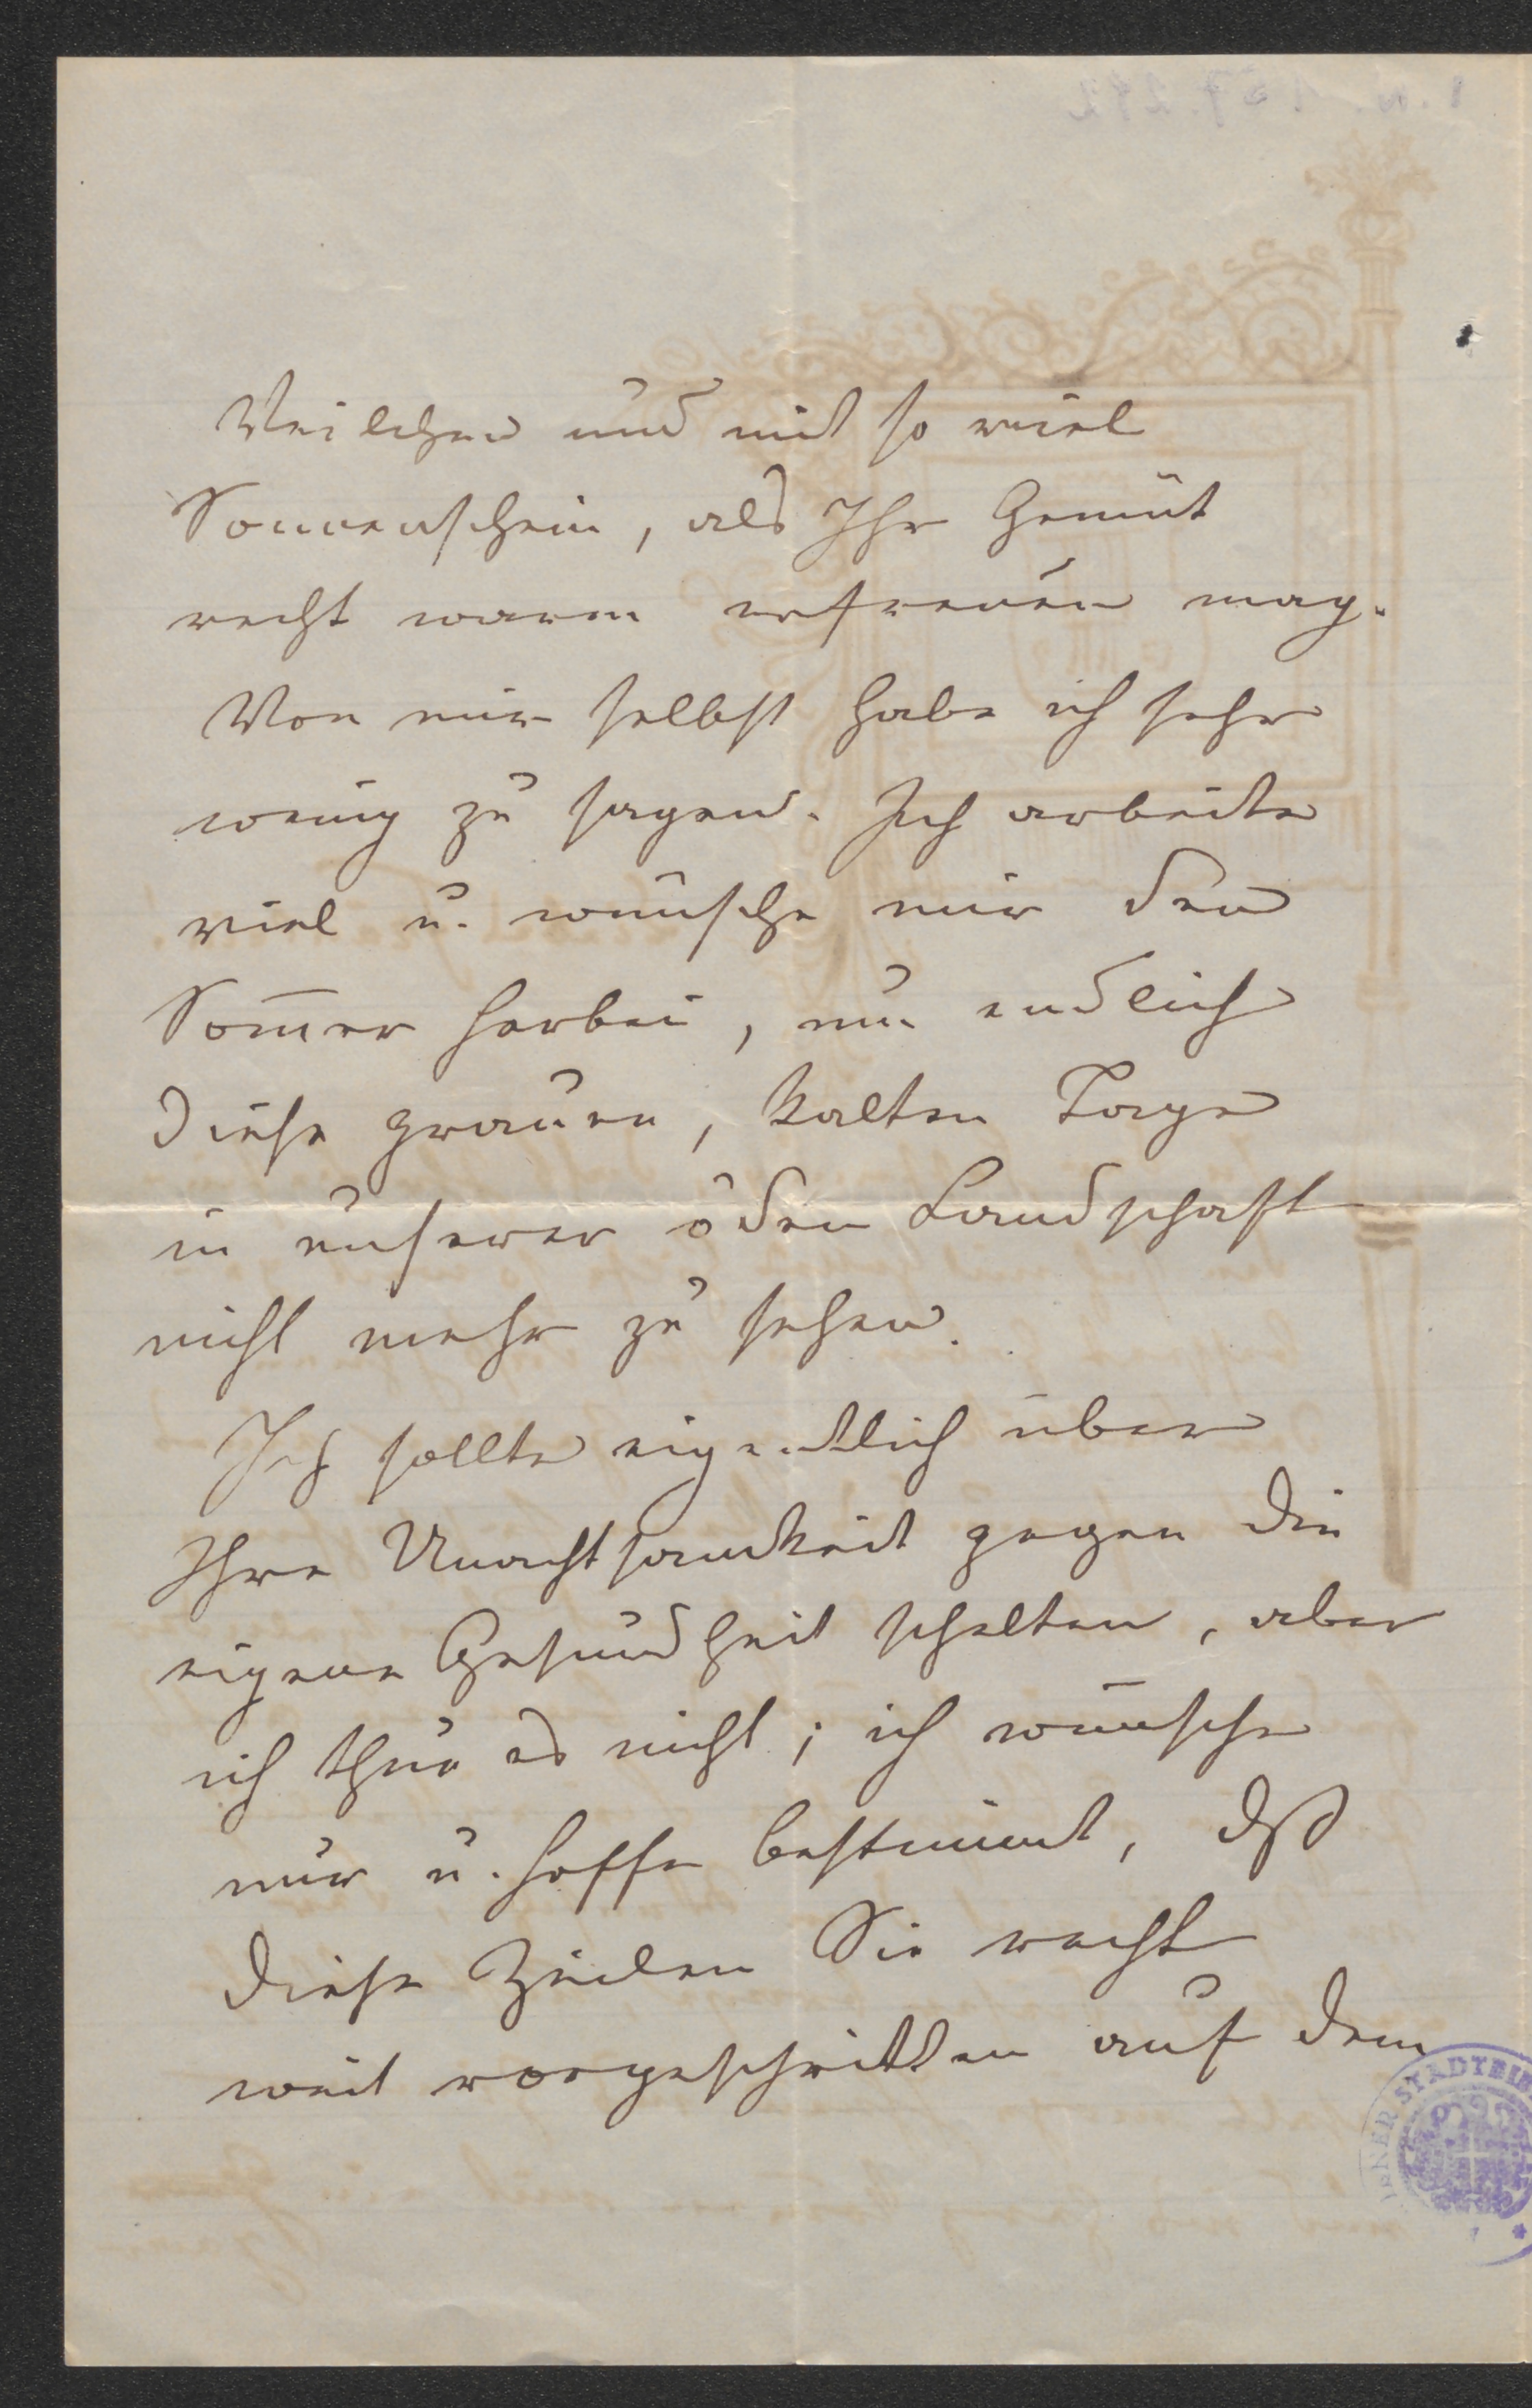 Veilchen und mit so viel
Sonnenschein, als Ihr Gemüt
recht warm erfreuen mag.
Von mir selbst habe ich sehr
wenig zu sagen. Ich arbeite
viel u. wünsche mir den
Som̅er herbei, um endlich
diese grauen, kalten Tage
in unserer öden Landschaft
nicht mehr zu sehen.
Ich sollte eigentlich über
Ihre Unachtsamkeit gegen die
eigene Gesundheit schelten, aber
ich thue es nicht; ich wünsche
nur u. hoffe bestimmt, dß
diese Zeilen Sie recht
weit vorgeschritten auf dem